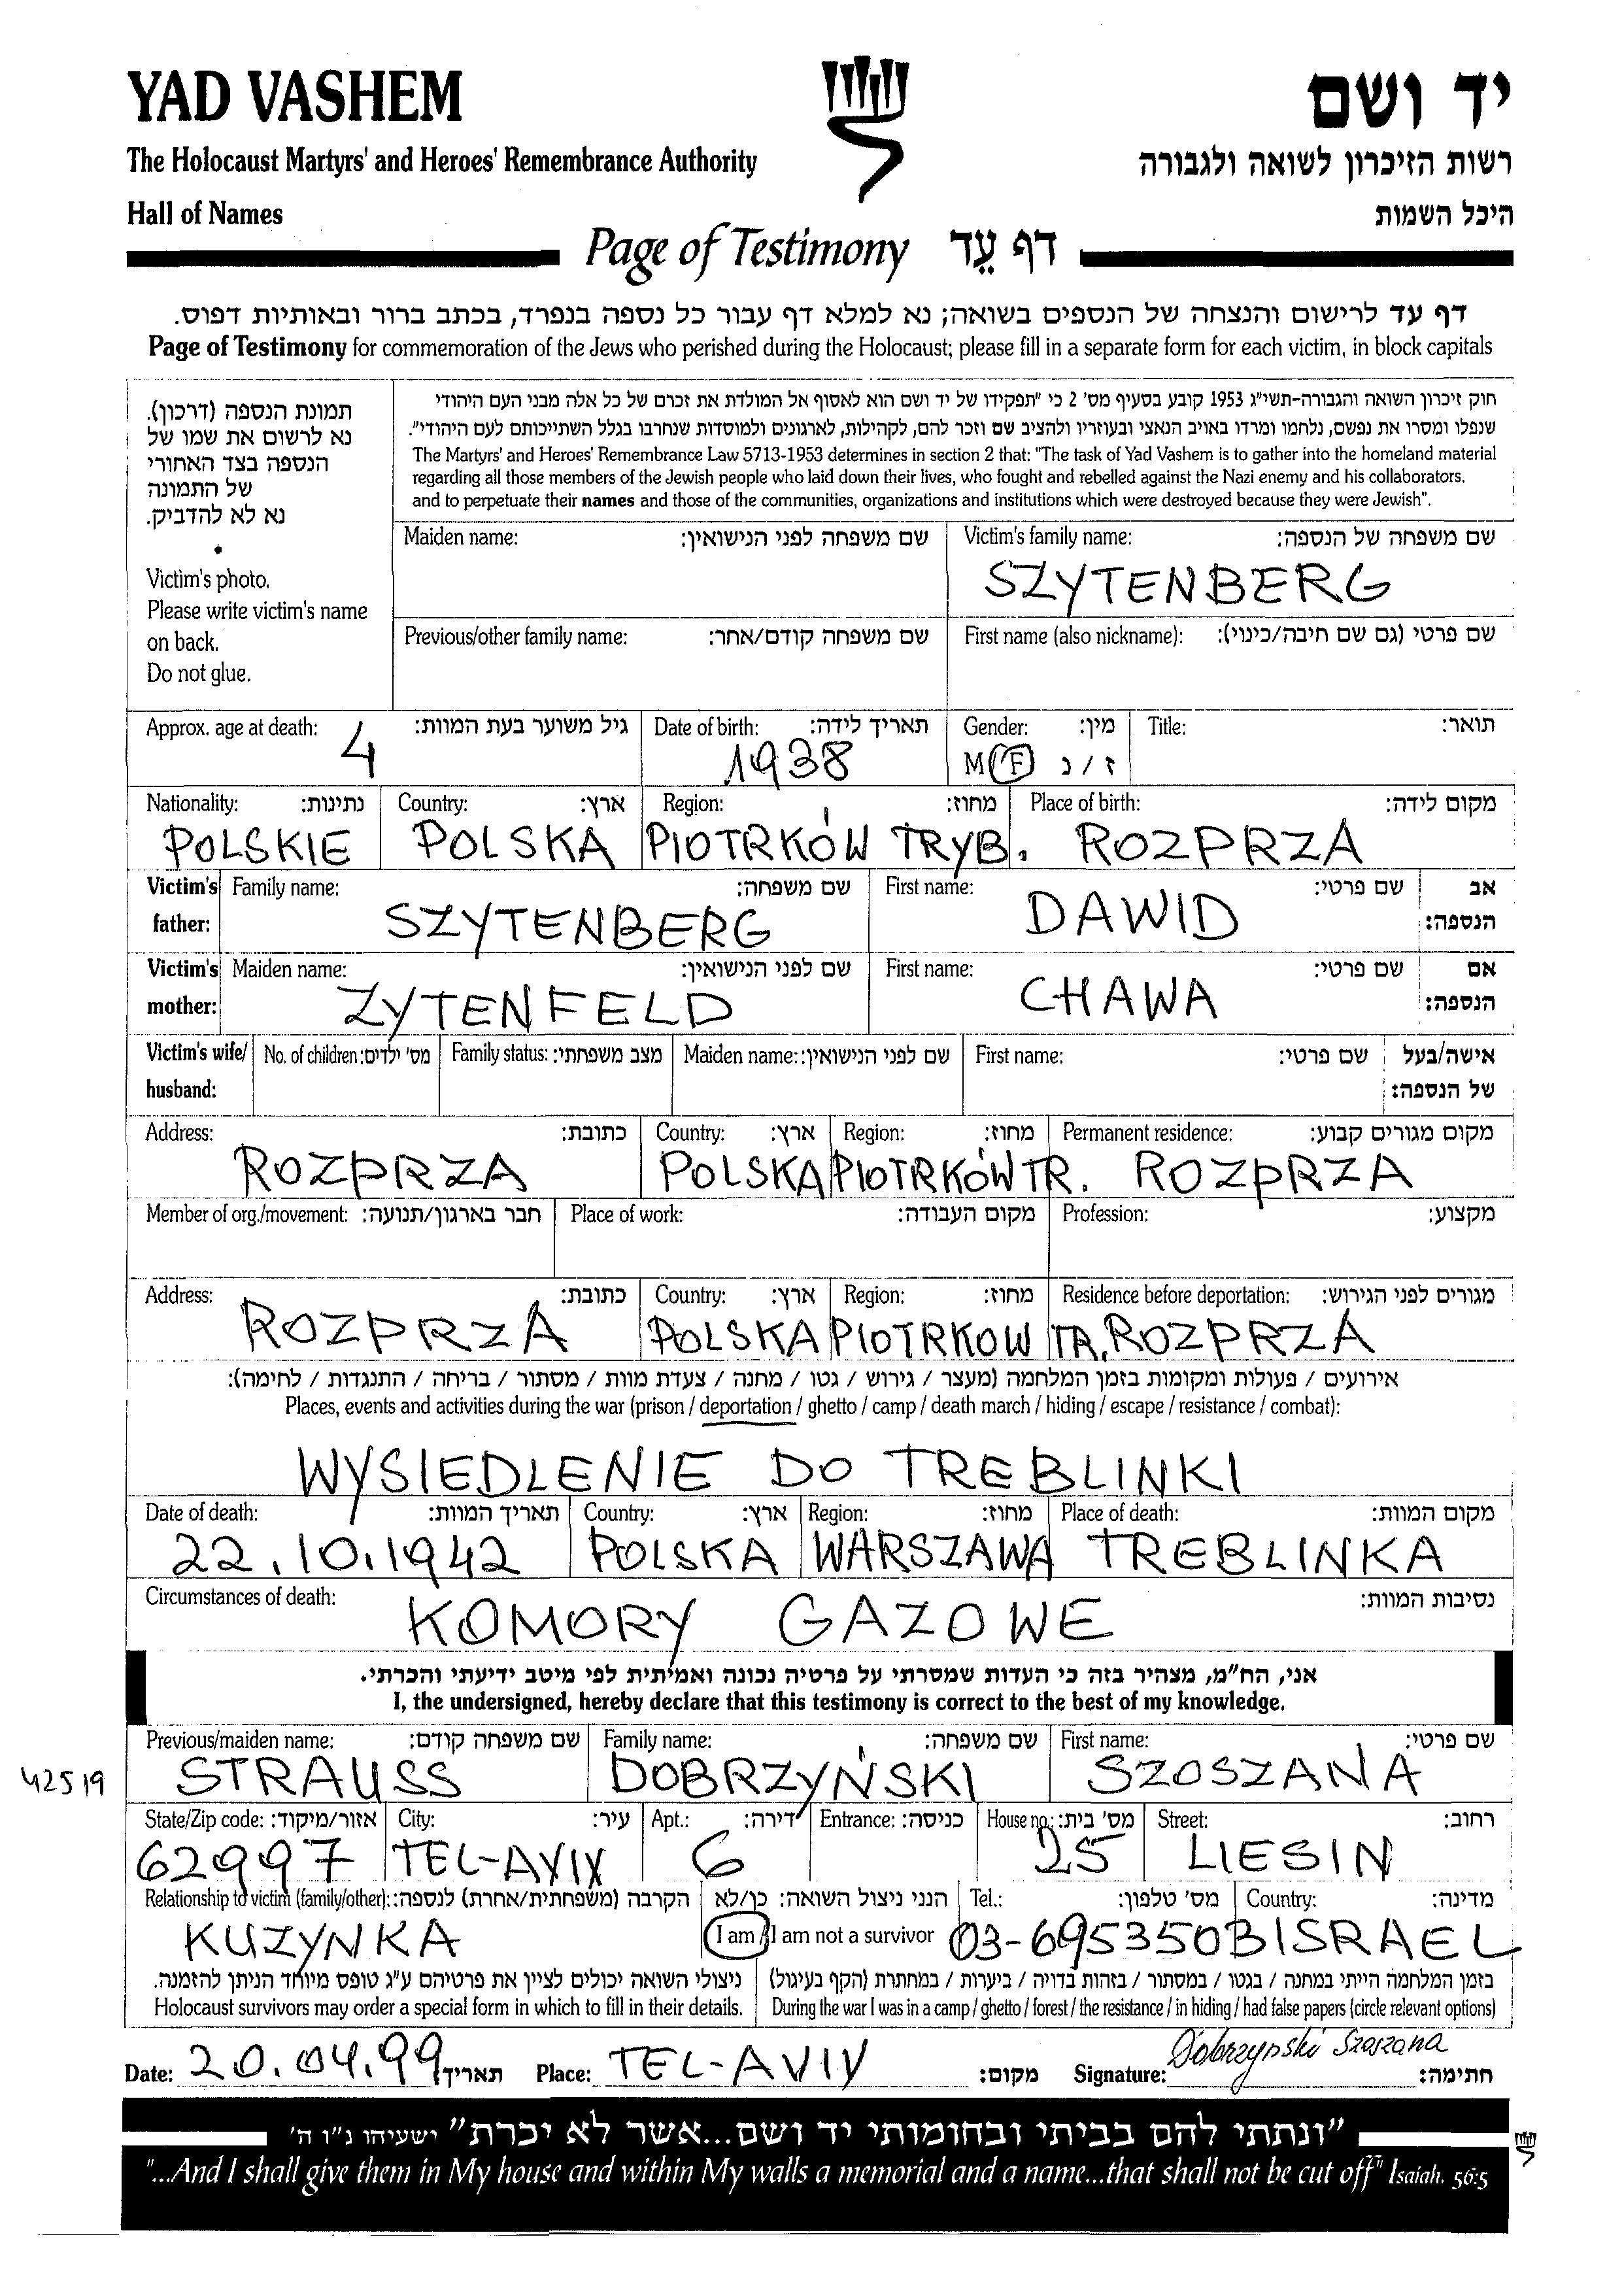 YAD VASHEM
יד ושם
The Holocaust Martyrs' and Heroes' Remembrance Authority
רשות הזיכרון לשואה ולגבורה
Hall of Names
היכל השמות
Page of Testimony דף עֵד
דף עד לרישום והנצחה של הנספים בשואה; נא למלא דף עבור כל נספה בנפרד, בכתב ברור ובאותיות דפוס.
Page of Testimony for commemoration of the Jews who perished during the Holocaust; please fill in a separate form for each victim, in block capitals
תמונת הנספה (דרכון).
נא לרשום את שמו של
הנספה בצד האחורי
של התמונה
נא לא להדביק.
Victim's photo.
Please write victim's name
on back.
Do not glue.
חוק זיכרון השואה והגבורה-תשי"ג 1953 קובע בסעיף מס' 2 כי "תפקידו של יד ושם הוא לאסוף אל המולדת את זכרם של כל אלה מבני העם היהודי
שנפלו ומסרו את נפשם, נלחמו ומרדו באויב הנאצי ובעוזריו ולהציב שם וזכר להם, לקהילות, לארגונים ולמוסדות שנחרבו בגלל השתייכותם לעם היהודי".
The Martyrs' and Heroes' Remembrance Law 5713-1953 determines in section 2 that: "The task of Yad Vashem is to gather into the homeland material
regarding all those members of the Jewish people who laid down their lives, who fought and rebelled against the Nazi enemy and his collaborators,
and to perpetuate their names and those of the communities, organizations and institutions which were destroyed because they were Jewish".
Maiden name: שם משפחה לפני הנישואין: Victim's family name: שם משפחה של הנספה:
SZYTENBERG
Previous/other family name: שם משפחה קודם/אחר: First name (also nickname): שם פרטי (גם שם חיבה/כינוי):
Approx. age at death: גיל משוער בעת המוות: Date of birth: תאריך לידה: Gender: מין: Title: תואר:
4 1938 M / F ז / נ
Nationality: נתינות: Country: ארץ: Region: מחוז: Place of birth: מקום לידה:
POLSKIE POLSKA PIOTRKÓW TRYB. ROZPRZA
Victim's father: Family name: שם משפחה: First name: שם פרטי: אב הנספה:
SZYTENBERG DAWID
Victim's mother: Maiden name: שם לפני הנישואין: First name: שם פרטי: אם הנספה:
ZYTENFELD CHAWA
Victim's wife/ husband: No. of children: מס' ילדים: Family status: מצב משפחתי: Maiden name: שם לפני הנישואין: First name: שם פרטי: אישה/בעל של הנספה:
Address: כתובת: Country: ארץ: Region: מחוז: Permanent residence: מקום מגורים קבוע:
ROZPRZA POLSKA PIOTRKÓW TR. ROZPRZA
Member of org./movement: חבר בארגון/תנועה: Place of work: מקום העבודה: Profession: מקצוע:
Address: כתובת: Country: ארץ: Region: מחוז: Residence before deportation: מגורים לפני הגירוש:
ROZPRZA POLSKA PIOTRKOW TR. ROZPRZA
אירועים / פעולות ומקומות בזמן המלחמה (מעצר / גירוש / גטו / מחנה / צעדת מוות / מסתור / בריחה / התנגדות / לחימה):
Places, events and activities during the war (prison / deportation / ghetto / camp / death march / hiding / escape / resistance / combat):
WYSIEDLENIE DO TREBLINKI
Date of death: תאריך המוות: Country: ארץ: Region: מחוז: Place of death: מקום המוות:
22.10.1942 POLSKA WARSZAWA TREBLINKA
Circumstances of death: נסיבות המוות:
KOMORY GAZOWE
אני, הח"מ, מצהיר בזה כי העדות שמסרתי על פרטיה נכונה ואמיתית לפי מיטב ידיעתי והכרתי.
I, the undersigned, hereby declare that this testimony is correct to the best of my knowledge.
Previous/maiden name: שם משפחה קודם: Family name: שם משפחה: First name: שם פרטי:
42519 STRAUSS DOBRZYŃSKI SZOSZANA
State/Zip code: אזור/מיקוד: City: עיר: Apt.: דירה: Entrance: כניסה: House no.: מס' בית: Street: רחוב:
62997 TEL-AVIV 6 25 LIESIN
Relationship to victim (family/other): הקרבה (משפחתית/אחרת) לנספה: הנני ניצול השואה: כן/לא Tel.: מס' טלפון: Country: מדינה:
KUZYNKA I am / I am not a survivor 03-6953503 ISRAEL
ניצולי השואה יכולים לציין את פרטיהם ע"ג טופס מיוחד הניתן להזמנה. בזמן המלחמה הייתי במחנה / בגטו / במסתור / בזהות בדויה / ביערות / במחתרת (הקף בעיגול)
Holocaust survivors may order a special form in which to fill in their details. During the war I was in a camp / ghetto / forest / the resistance / in hiding / had false papers (circle relevant options)
Date: 20.04.99 תאריך Place: TEL-AVIV מקום: Signature: Dobrzyński Szoszana חתימה:
"ונתתי להם בביתי ובחומותי יד ושם...אשר לא יכרת" ישעיהו נ"ו ה'
"...And I shall give them in My house and within My walls a memorial and a name...that shall not be cut off" Isaiah. 56:5